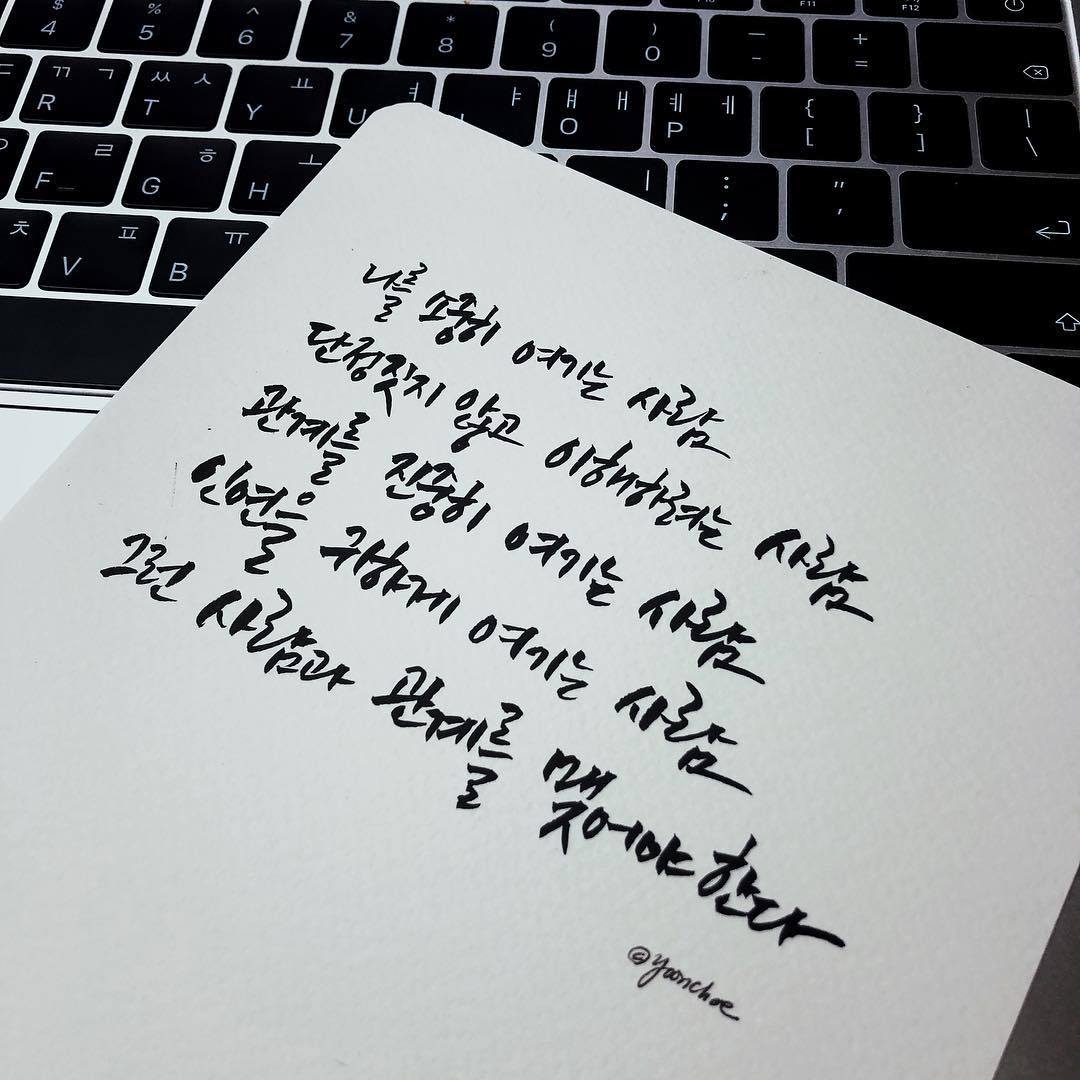 $ 4 % 5 ^ 6 & 7 * 8 ( 9 ) 0 — - + = F11 F12
ㄲ ㄱ R ㅆ ㅅ T ㅛ Y ㅕ U ㅑ ㅒ ㅐ O ㅖ ㅔ P { [ } ] | \
ㄹ F ㅎ G ㅗ H ㅣ : ; " '
ㅊ ㅍ V ㅠ B
나를 소중히 여기는 사람
단정짓지 않고 이해하려는 사람
관계를 진중히 여기는 사람
인연을 귀하게 여기는 사람
그런 사람과 관계를 맺어야 한다
@yoonchoe